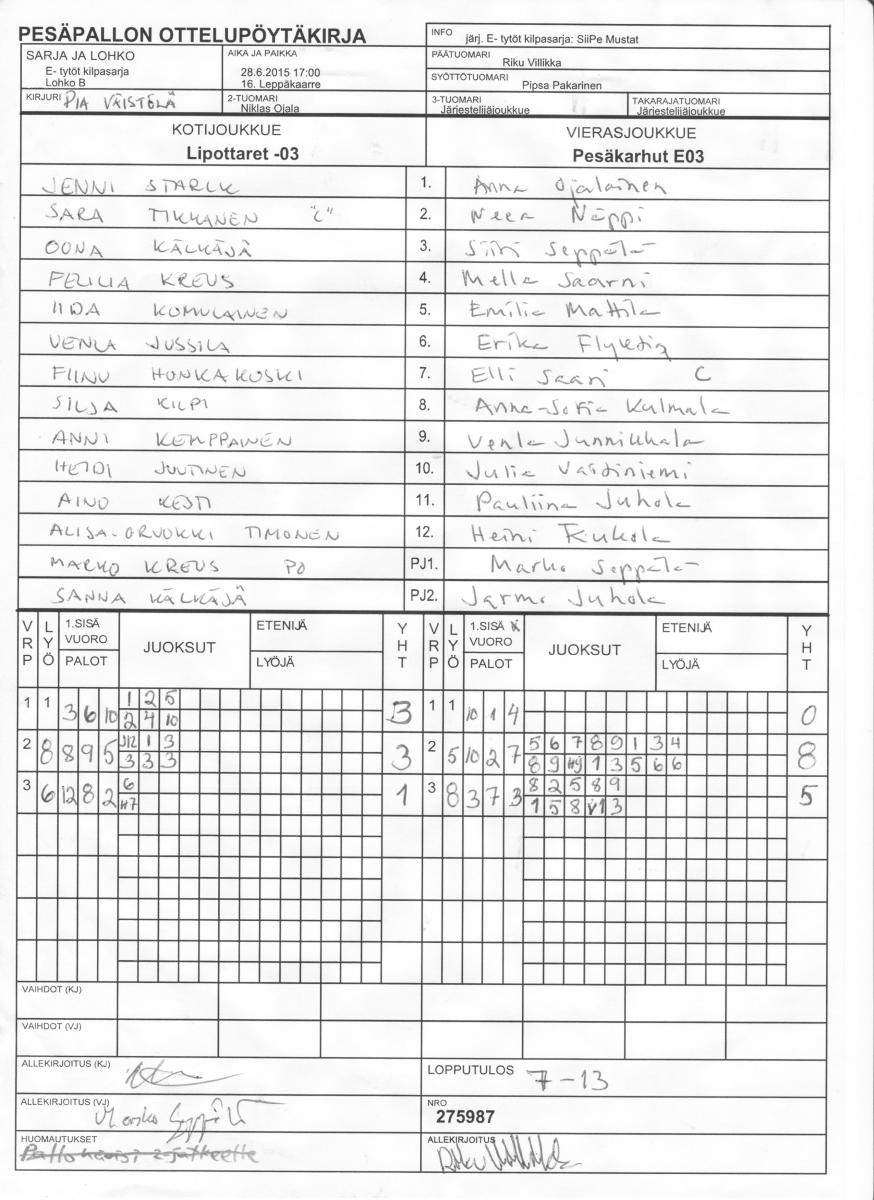 PESÄPALLON OTTELUPÖYTÄKIRJA
INFO järj. E- tytöt kilpasarja: SiiPe Mustat
SARJA JA LOHKO
E- tytöt kilpasarja
Lohko B
AIKA JA PAIKKA
28.6.2015 17:00
16. Leppäkaarre
PÄÄTUOMARI Riku Villikka
SYÖTTÖTUOMARI Pipsa Pakarinen
KIRJURI PIA VÄISTÖLÄ
2-TUOMARI
Niklas Ojala
3-TUOMARI
Järjestelijäjoukkue
TAKARAJATUOMARI
Järjestelijäjoukkue
KOTIJOUKKUE VIERASJOUKKUE
Lipottaret -03 Pesäkarhut E03
JENNI STARCK 1. Anna Ojalainen
SARA TIKKANEN "C" 2. Neea Näppi
OONA KÄLKÄJÄ 3. Siiri Seppälä
FELILIA KREUS 4. Mella Saarni
IIDA KOMULAINEN 5. Emilia Mattila
VENLA JUSSILA 6. Erika
FIINU HONKAKOSKI 7. Elli Saari C
SILJA KILPI 8. Anna-Sofia Kulmala
ANNI KEMPPAINEN 9. Venla Junnikkala
HEIDI JUUTINEN 10. Julia
AINO KESTI 11. Pauliina Juhola
ALISA-ORVOKKI TIMONEN 12. Heini Kukola
MARKO KREUS PO PJ1. Marko Seppälä
SANNA KÄLKÄJÄ PJ2. Jarmo Juhola
VRP LYÖ 1.SISÄ VUORO PALOT JUOKSUT ETENIJÄ LYÖJÄ YHT VRP LYÖ 1.SISÄ X VUORO PALOT JUOKSUT ETENIJÄ LYÖJÄ YHT
1 1 3 6 10 1 2 5 3 1 1 10 1 4 0
2 4 10
2 8 8 9 5 J12 1 3 3 2 5 10 2 7 5 6 7 8 9 1 3 4 8
3 3 3 8 9 H9 1 3 5 6 6
3 6 12 8 2 6 1 3 8 3 7 3 8 2 5 8 9 5
H7 1 5 8 V1 3
VAIHDOT (KJ)
VAIHDOT (VJ)
ALLEKIRJOITUS (KJ)
LOPPUTULOS 7 - 13
ALLEKIRJOITUS (VJ) Marko Seppälä
NRO
275987
HUOMAUTUKSET
ALLEKIRJOITUS